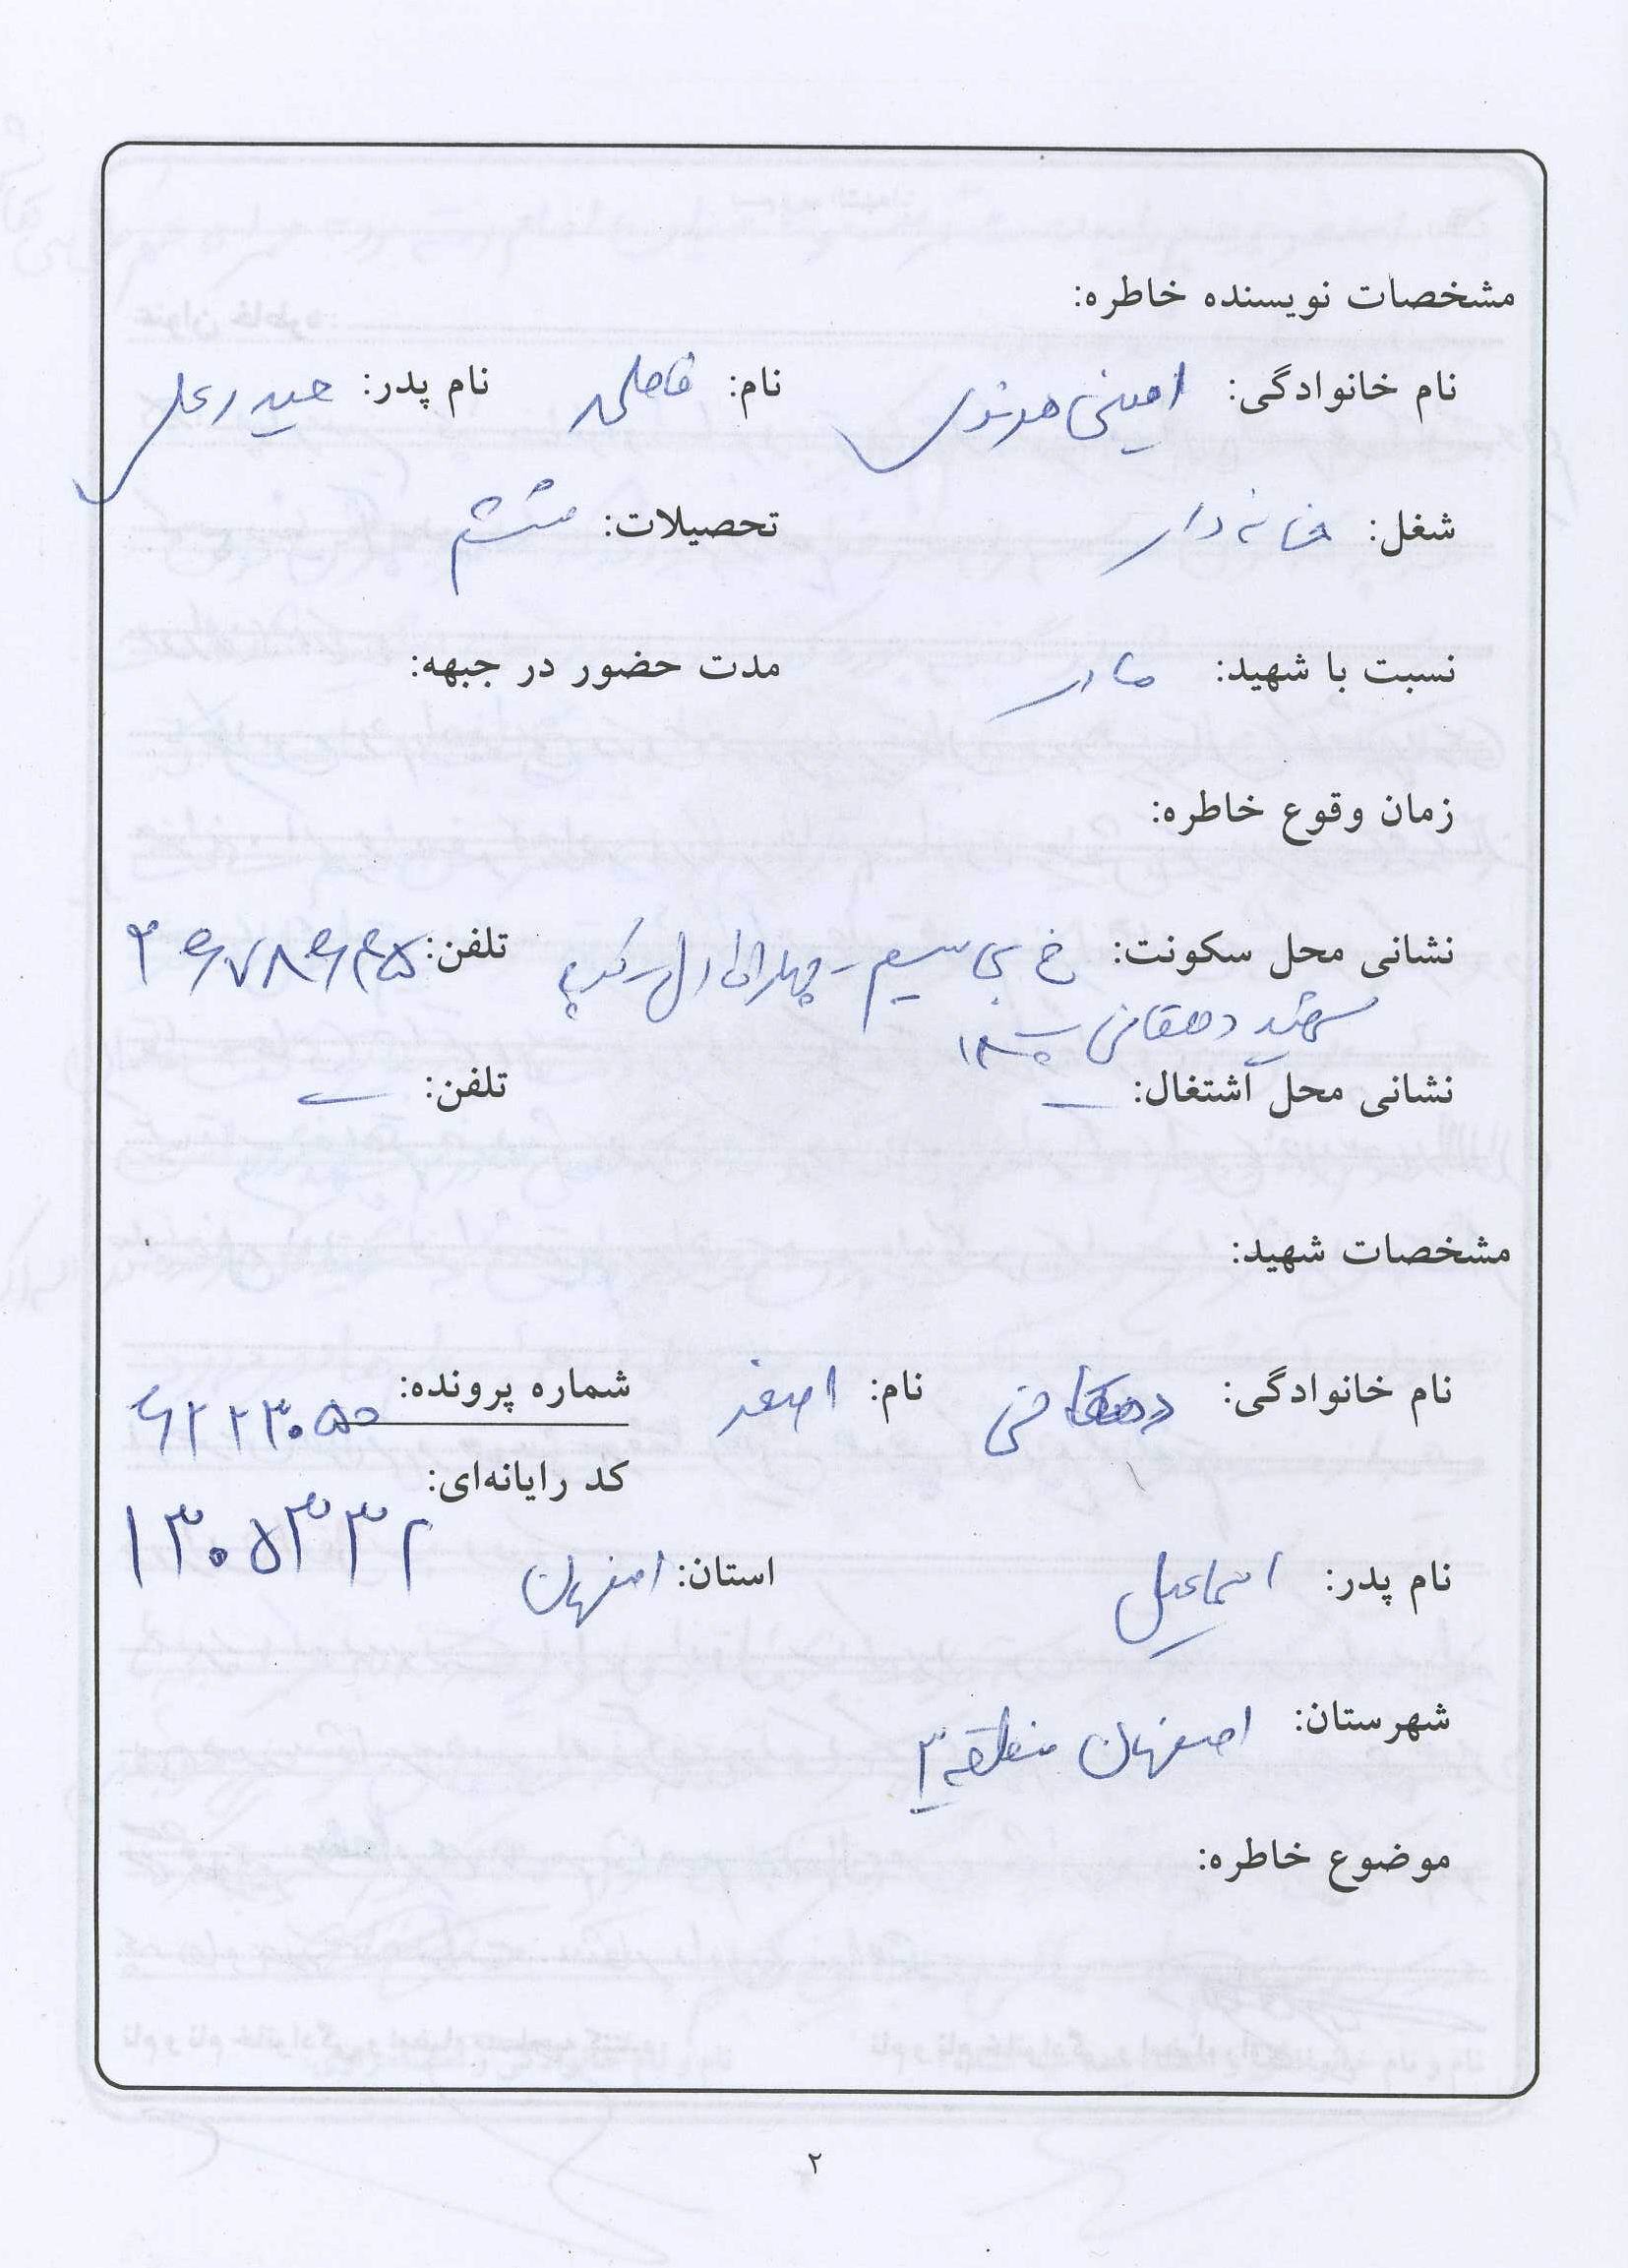 مشخصات نویسنده خاطره:
نام خانوادگی: امینی هرندی نام: فاطمه نام پدر: حیدرعلی
شغل: خانه دار تحصیلات: ششم
نسبت با شهید: مادر مدت حضور در جبهه:
زمان وقوع خاطره:
نشانی محل سکونت: خ بی سیم - چهارراه اول - کوچه تلفن:
شهید دهقانی پ
نشانی محل اشتغال: — تلفن: —
مشخصات شهید:
نام خانوادگی: دهقانی نام: اصغر شماره پرونده: ۶۲۲۳۰۵۰
کد رایانه‌ای: ۱۳۰۵۳۳۲
نام پدر: اسماعیل استان: اصفهان
شهرستان: اصفهان منطقه ۳
موضوع خاطره:
۲